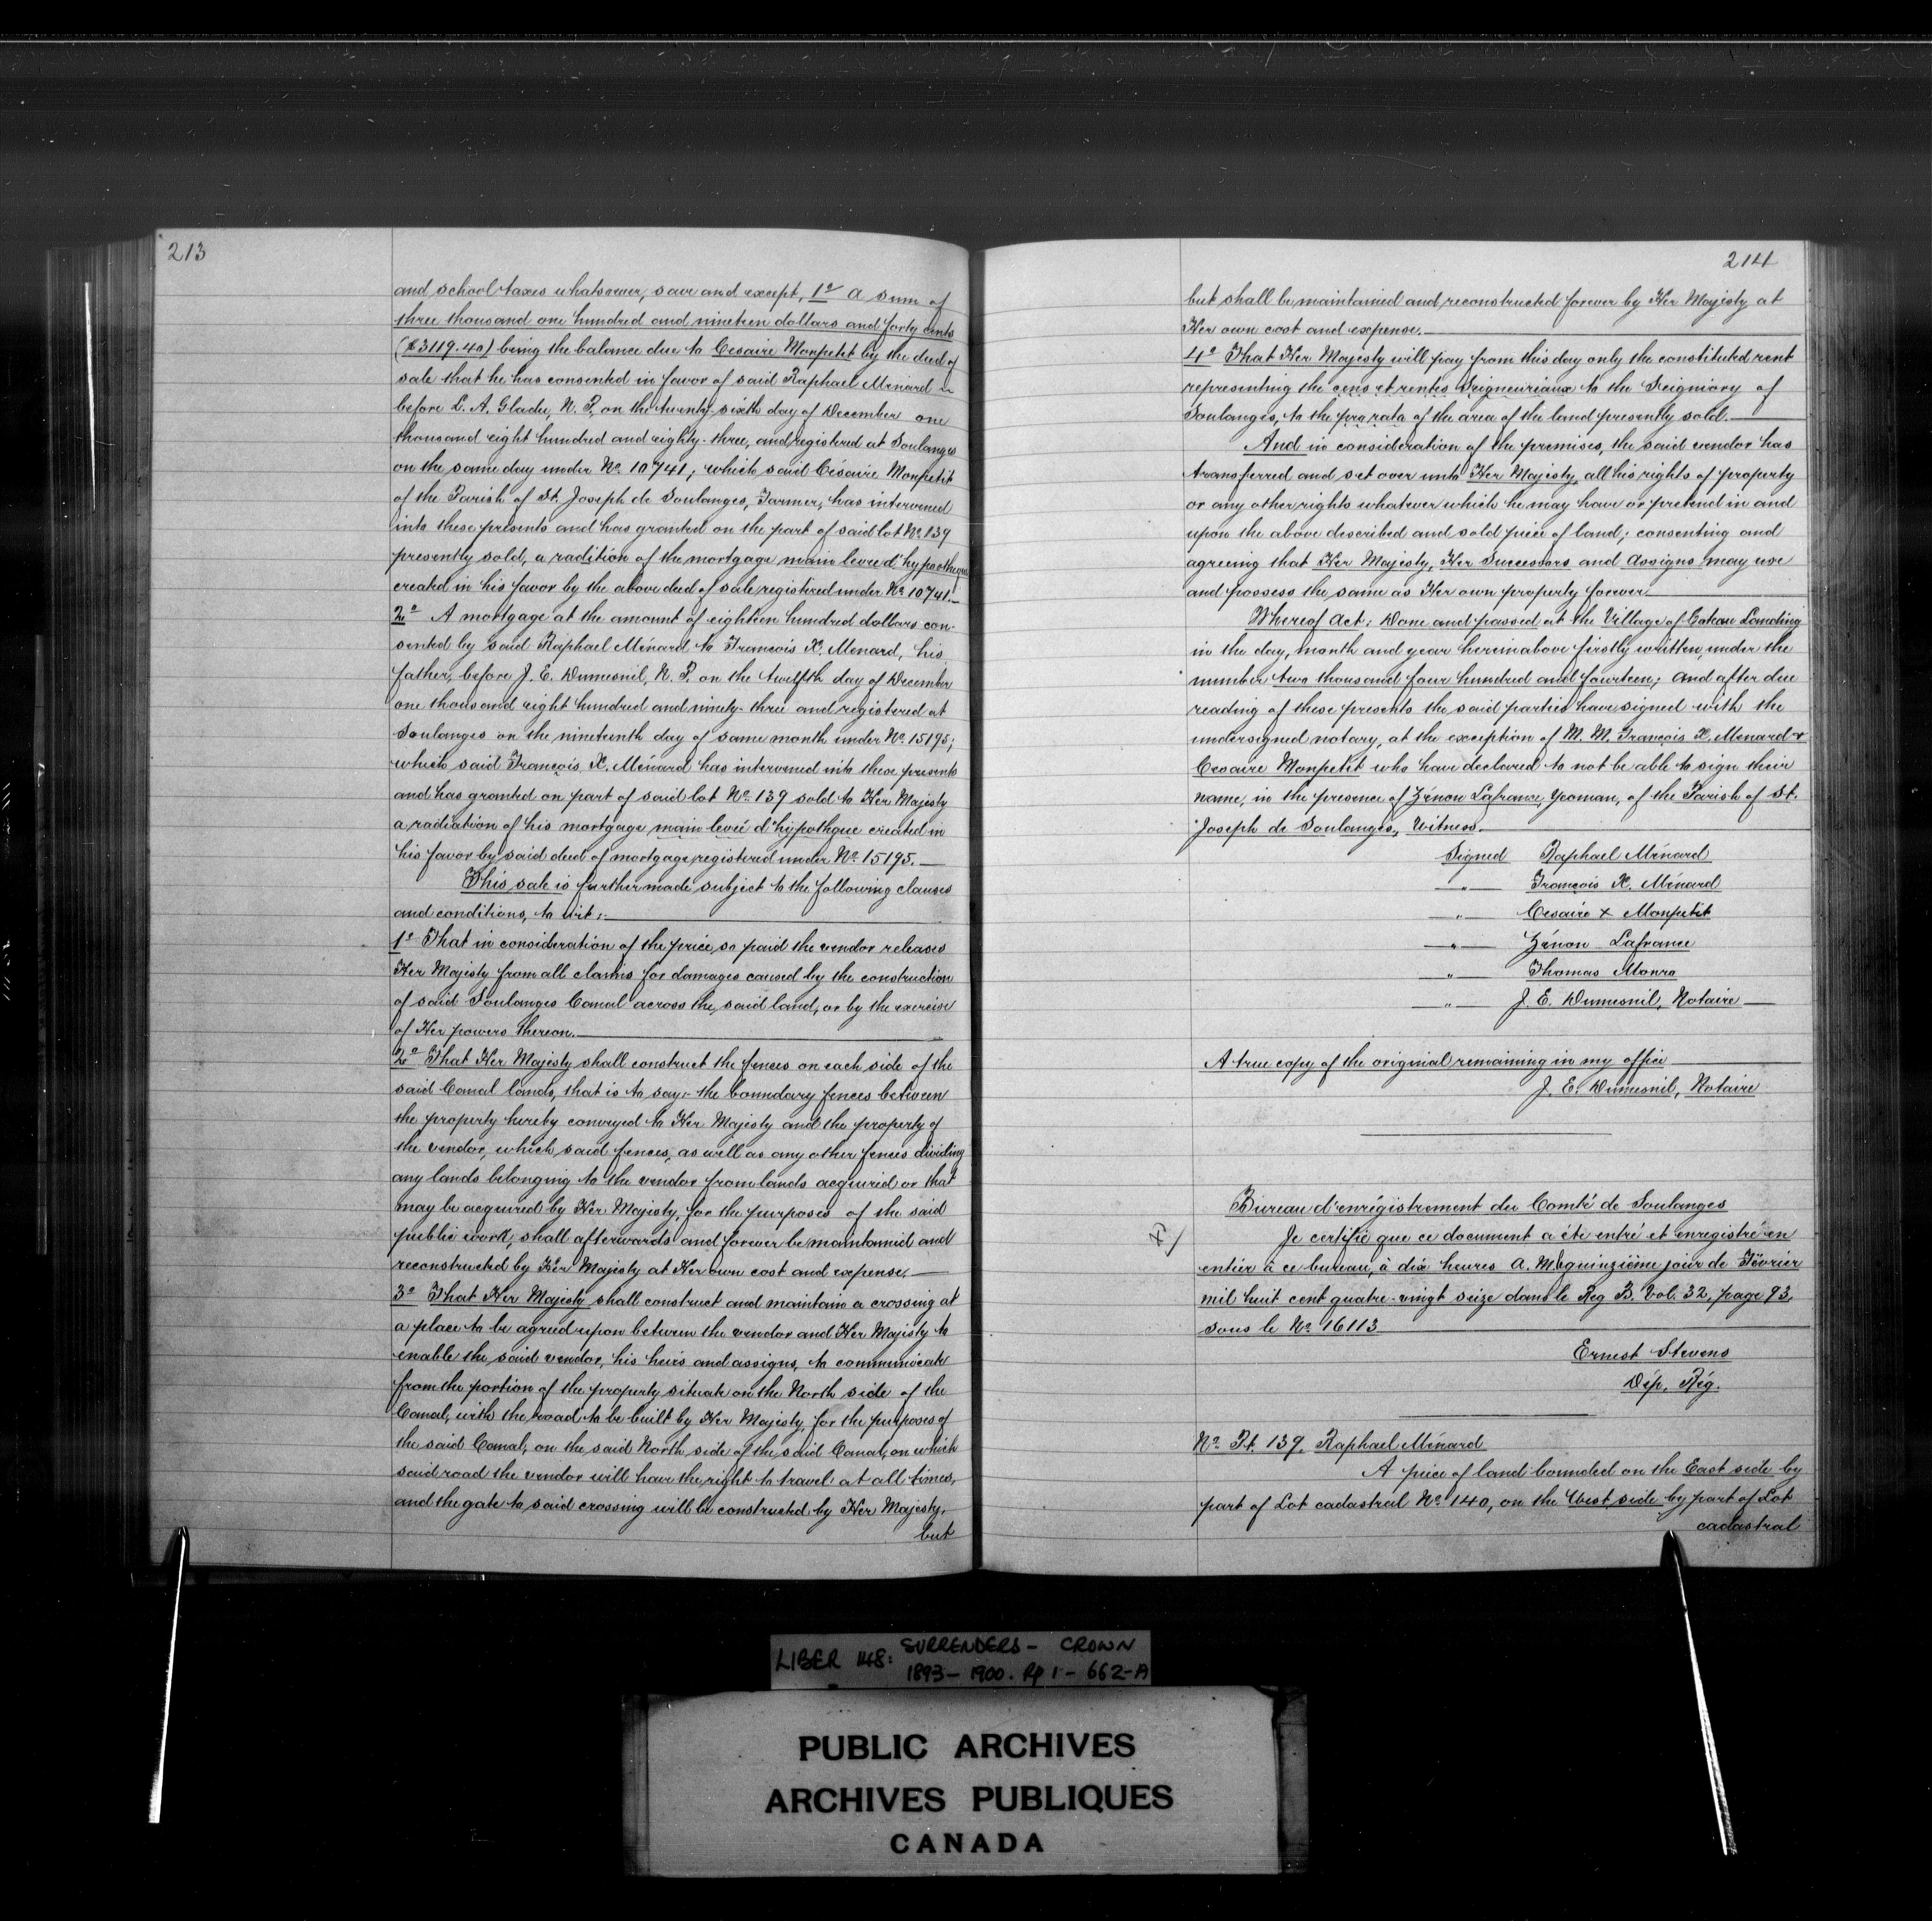 213
and school taxes whatsoever, save and except, 1º a sum of
three thousand one hundred and nineteen dollars and forty cents
($3119.40) being the balance due to Cesaire Monpetit by the deed of
sale that he has consented in favor of said Raphael Ménard
before L. A. Gladu, N. P. on the twenty-sixth day of December one
thousand eight hundred and eighty-three, and registered at Soulanges
on the same day under Nº 10741; which said Césaire Monpetit
of the Parish of St. Joseph de Soulanges, Farmer, has intervened
into these presents and has granted on the part of said lot Nº 139
presently sold, a radition of the mortgage main levee d'hypotheque
created in his favor by the above deed of sale registered under Nº 10741.
2º A mortgage at the amount of eighteen hundred dollars con-
sented by said Raphael Ménard to François X. Menard, his
father, before J. E. Dumesnil, N. P. on the twelfth day of December
one thousand eight hundred and ninety-three and registered at
Soulanges on the nineteenth day of same month under Nº 15195;
which said François X. Ménard has intervened into these presents
and has granted on part of said lot Nº 139 sold to Her Majesty
a radiation of his mortgage main leveé d'hypothque created in
his favor by said deed of mortgage registered under Nº 15195.
This sale is further made subject to the following clauses
and conditions, to wit:-
1º That in consideration of the price so paid the vendor releases
Her Majesty from all claims for damages caused by the construction
of said Soulanges Canal across the said land, or by the exercise
of Her powers thereon.
2º That Her Majesty shall construct the fences on each side of the
said Canal lands, that is to say:- the boundary fences between
the property hereby conveyed to Her Majesty and the property of
the vendor, which said fences, as well as any other fences dividing
any lands belonging to the vendor from lands acquired or that
may be acquired by Her Majesty, for the purposes of the said
public work, shall afterwards and forever be maintained and
reconstructed by Her Majesty at Her own cost and expense.
3º That Her Majesty shall construct and maintain a crossing at
a place to be agreed upon between the vendor and Her Majesty to
enable the said vendor, his heirs and assigns, to communicate
from the portion of the property situate on the North side of the
Canal, with the road to be built by Her Majesty, for the purposes of
the said Canal, on the said North side of the said Canal, on which
said road the vendor will have the right to travel at all times,
and the gate to said crossing will be constructed by Her Majesty,
but
214
but shall be maintained and reconstructed forever by Her Majesty at
Her own cost and expense.
4º That Her Majesty will pay from this day only the constituted rent
representing the cens et rentes Seigneuriaux to the Seigniory of
Soulanges, to the pro rata of the area of the land presently sold.
And in consideration of the premises, the said vendor has
transferred and set over unto Her Majesty, all his rights of property
or any other rights whatever which he may have or pretend in and
upon the above described and sold piece of land; consenting and
agreeing that Her Majesty, Her Successors and Assigns may use
and possess the same as Her own property forever
Whereof Act: Done and passed at the Village of Coteau Landing
in the day, month and year hereinabove firstly written, under the
number two thousand four hundred and fourteen; and after due
reading of these presents the said parties have signed with the
undersigned notary, at the exception of M. M. François X. Menard &
Cesaire Monpetit who have declared to not be able to sign their
name, in the presence of Zénon Lafrance, yeoman, of the Parish of St.
Joseph de Soulanges, Witness.
Signed Raphael Ménard
" François X. Ménard
" Cesaire x Monpetit
" Zénon Lafrance
" Thomas Monro
" J. E. Dumesnil, Notaire
A true copy of the original remaining in my office
J. E. Dumesnil, Notaire
Bureau d'enrégistrement du Comté de Soulanges
Je certifie que ce document a été entré et enregistré en
entier à ce bureau, à dix heures A. M. quinzième jour de Février
mil huit cent quatre-vingt seize dans le Reg B. Vol. 32, page 93,
sous le Nº 16113
Ernest Stevens
Dép. Rég.
Nº Pt. 139. Raphael Ménard
A piece of land bounded on the East side by
part of Lot cadastral Nº 140, on the West side by part of Lot
cadastral
LIBER 148: SURRENDERS - CROWN
1893-1900. Pp 1-662-A
PUBLIC ARCHIVES
ARCHIVES PUBLIQUES
CANADA